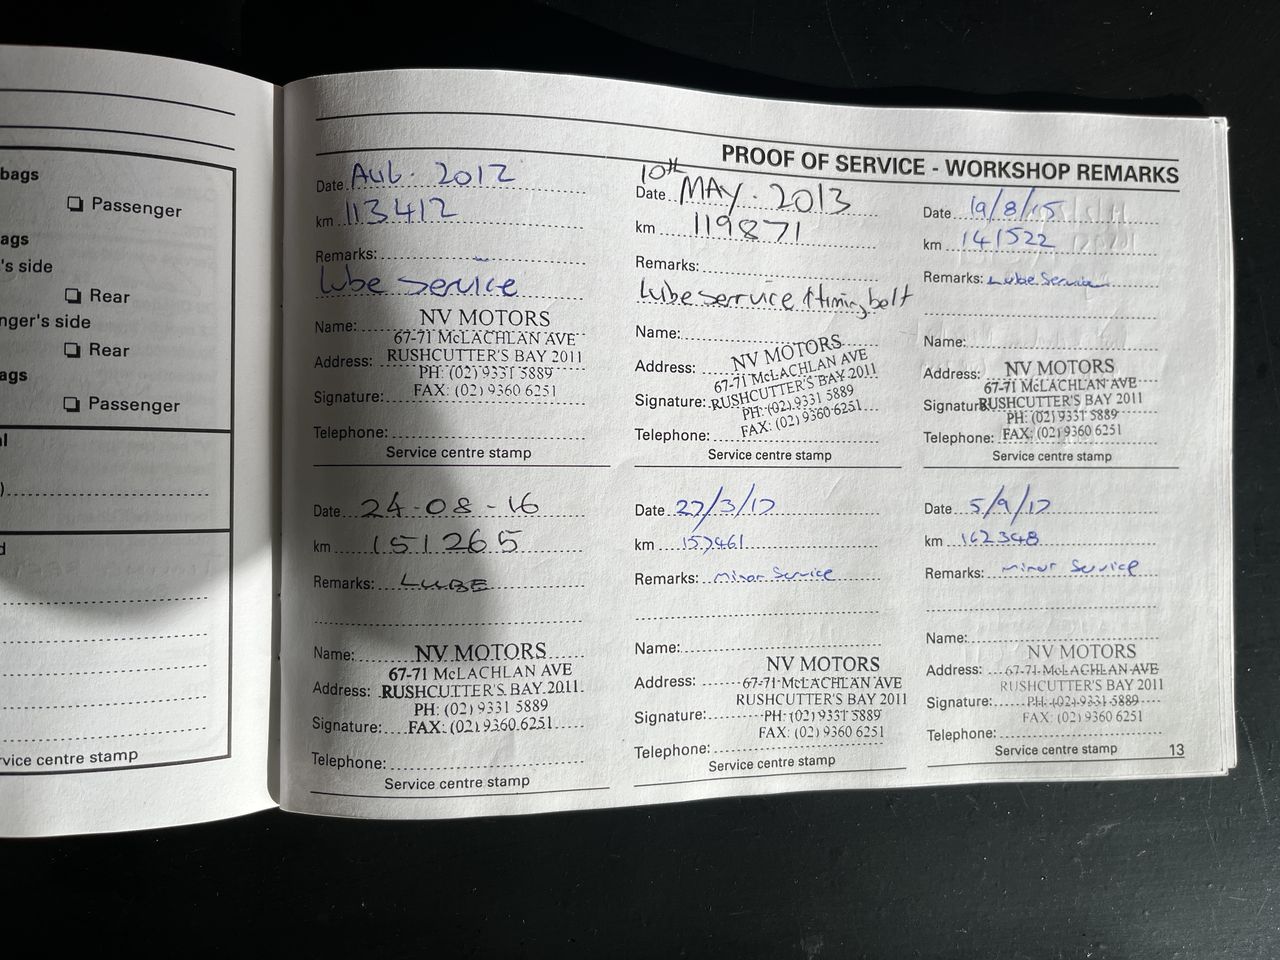 bags
Passenger
ags
's side
Rear
nger's side
Rear
ags
Passenger
PROOF OF SERVICE - WORKSHOP REMARKS
Date AUG. 2012
km 113412
Remarks:
Lube Service
Name:
NV MOTORS
67-71 McLACHLAN AVE
Address: RUSHCUTTER'S BAY 2011
PH: (02) 9331 5889
Signature: FAX: (02) 9360 6251
Telephone:
Service centre stamp
10th
Date MAY. 2013
km 119871
Remarks:
Lube serrvice & timing belt
Name:
NV MOTORS
Address: 67-71 McLACHLAN AVE
Signature: RUSHCUTTER'S BAY 2011
PH: (02) 9331 5889
Telephone: FAX: (02) 9360 6251
Service centre stamp
Date 19/8/15
km 141522
Remarks: Lube Service
Name:
Address: NV MOTORS
67-71 McLACHLAN AVE
Signature RUSHCUTTER'S BAY 2011
PH: (02) 9331 5889
Telephone: FAX: (02) 9360 6251
Service centre stamp
Date 24-08-16
km 151265
Remarks: LUBE
Name: NV MOTORS
67-71 McLACHLAN AVE
Address: RUSHCUTTER'S BAY 2011
PH: (02) 9331 5889
Signature: FAX: (02) 9360 6251
Telephone:
Service centre stamp
Date 27/3/17
km 157461
Remarks: Minor Service
Name:
NV MOTORS
Address: 67-71 McLACHLAN AVE
RUSHCUTTER'S BAY 2011
Signature: PH: (02) 9331 5889
FAX: (02) 9360 6251
Telephone:
Service centre stamp
Date 5/9/17
km 162348
Remarks: Minor Service
Name:
NV MOTORS
Address: 67-71 McLACHLAN AVE
RUSHCUTTER'S BAY 2011
Signature: PH: (02) 9331 5889
FAX: (02) 9360 6251
Telephone:
Service centre stamp
13
rvice centre stamp